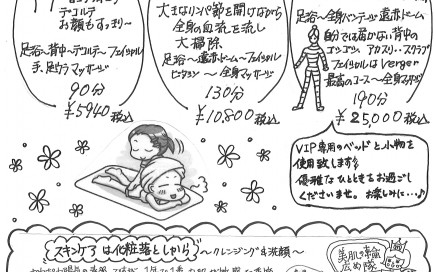 デコルテ
お顔もすっきり〜
足浴〜背中〜デコルテ〜フェイシャル
手、足ウラマッサージ
90分
¥5940税込
大きなリンパ節を開けながら
全身の血流を流し
大掃除
足浴〜遠赤ドーム〜フェイシャル
〜全身マッサージ
130分
¥10,800税込
足浴〜全身バンテージ遠赤ドーム
自分では届かない背中の
ゴシゴシ アカスリ、スクラブ
フェイシャルは
最高のコース〜全身マッサージ
190分
¥25,000税込
VIP専用のベッドと小物を
使用致します
優雅なひとときをお過ごし
くださいませ。お楽しみに…♪
スキンケアは化粧落としから〜クレンジング&洗顔〜
美肌の輪